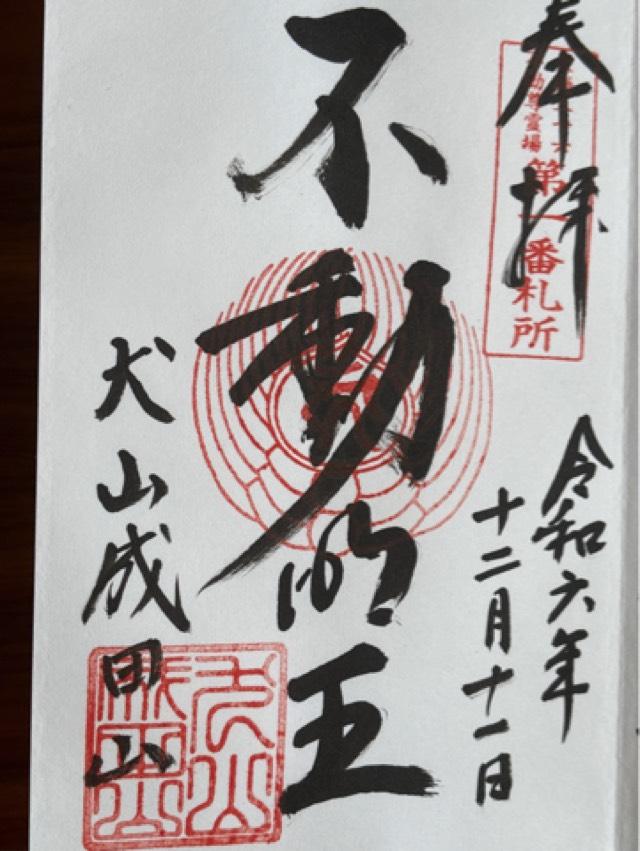 奉拝
動尊霊場
第一番札所
令和六年
十二月十一日
不動明王
犬山成田山